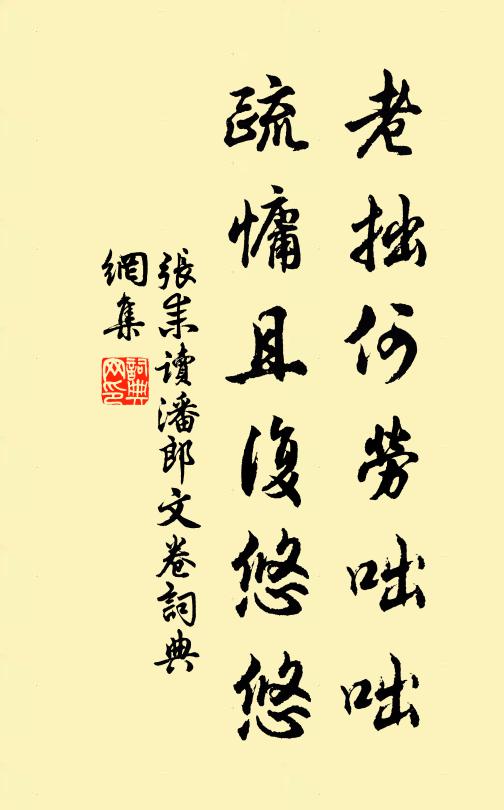 老拙何勞咄咄
疏慵且復悠悠
張耒讀潘郎文卷詞典
網集
詞典
网印